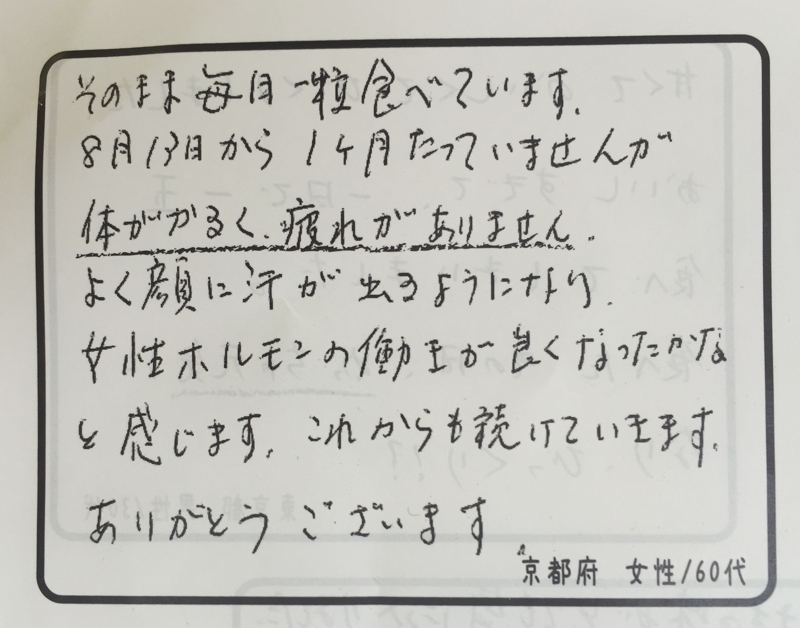 そのまま毎日一粒食べています。
8月13日から1ヶ月たっていませんが
体がかるく、疲れがありません。
よく顔に汗が出るようになり、
女性ホルモンの働きが良くなったかな
と感じます。これからも続けていきます。
ありがとうございます
京都府 女性/60代